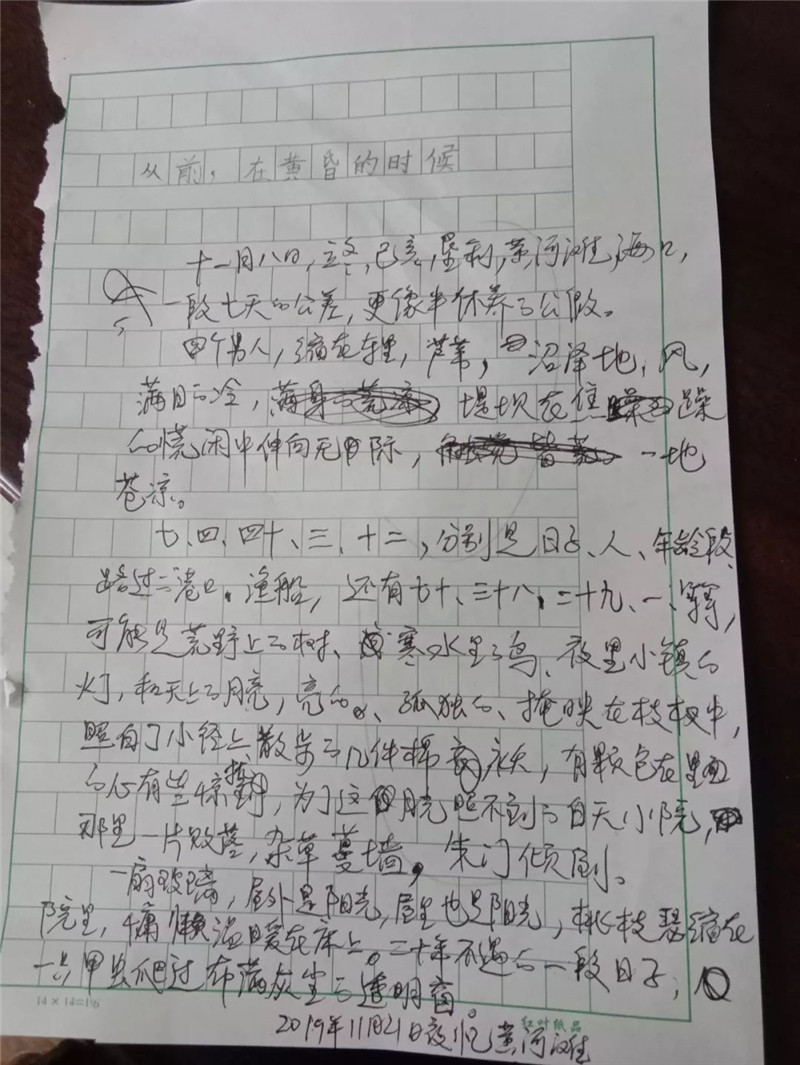 从前，在黄昏的时候
十一月八日，立冬，己亥，垦利，黄河滩，海口，
一段七天的公差，更像半休养的公假。
四个男人，缩在车里，芦苇，沼泽地，风，
满目的冷，堤坝在焦躁
的慌闲中伸向无际，一地
苍凉。
七、四、四十、三、十二，分别是日子、人、年龄段、
路过的港口、渔船，还有七十、三十八、二十九、一、等等，
可能是荒野上的树、寒水里的鸟、夜里小镇的
灯，和天上的月亮，亮的、孤独的、掩映在枝杈中，
照白了小径上散步的几件棉衣，有颗包在里面
的心有些惊扰，为了这月光照不到的白天小院，
那里一片败落，杂草蔓墙，朱门倾剥。
一扇玻璃，屋外是阳光，屋里也是阳光，桃枝瑟缩在
院里，慵懒温暖在床上。二十年不遇的一段日子，
一只甲虫爬过布满灰尘的透明窗。
2019年11月21日夜忆黄河滩
14×14=196
红叶纸品